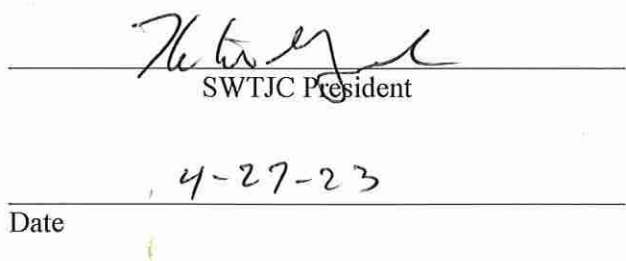 SWTJC President
4-27-23
Date